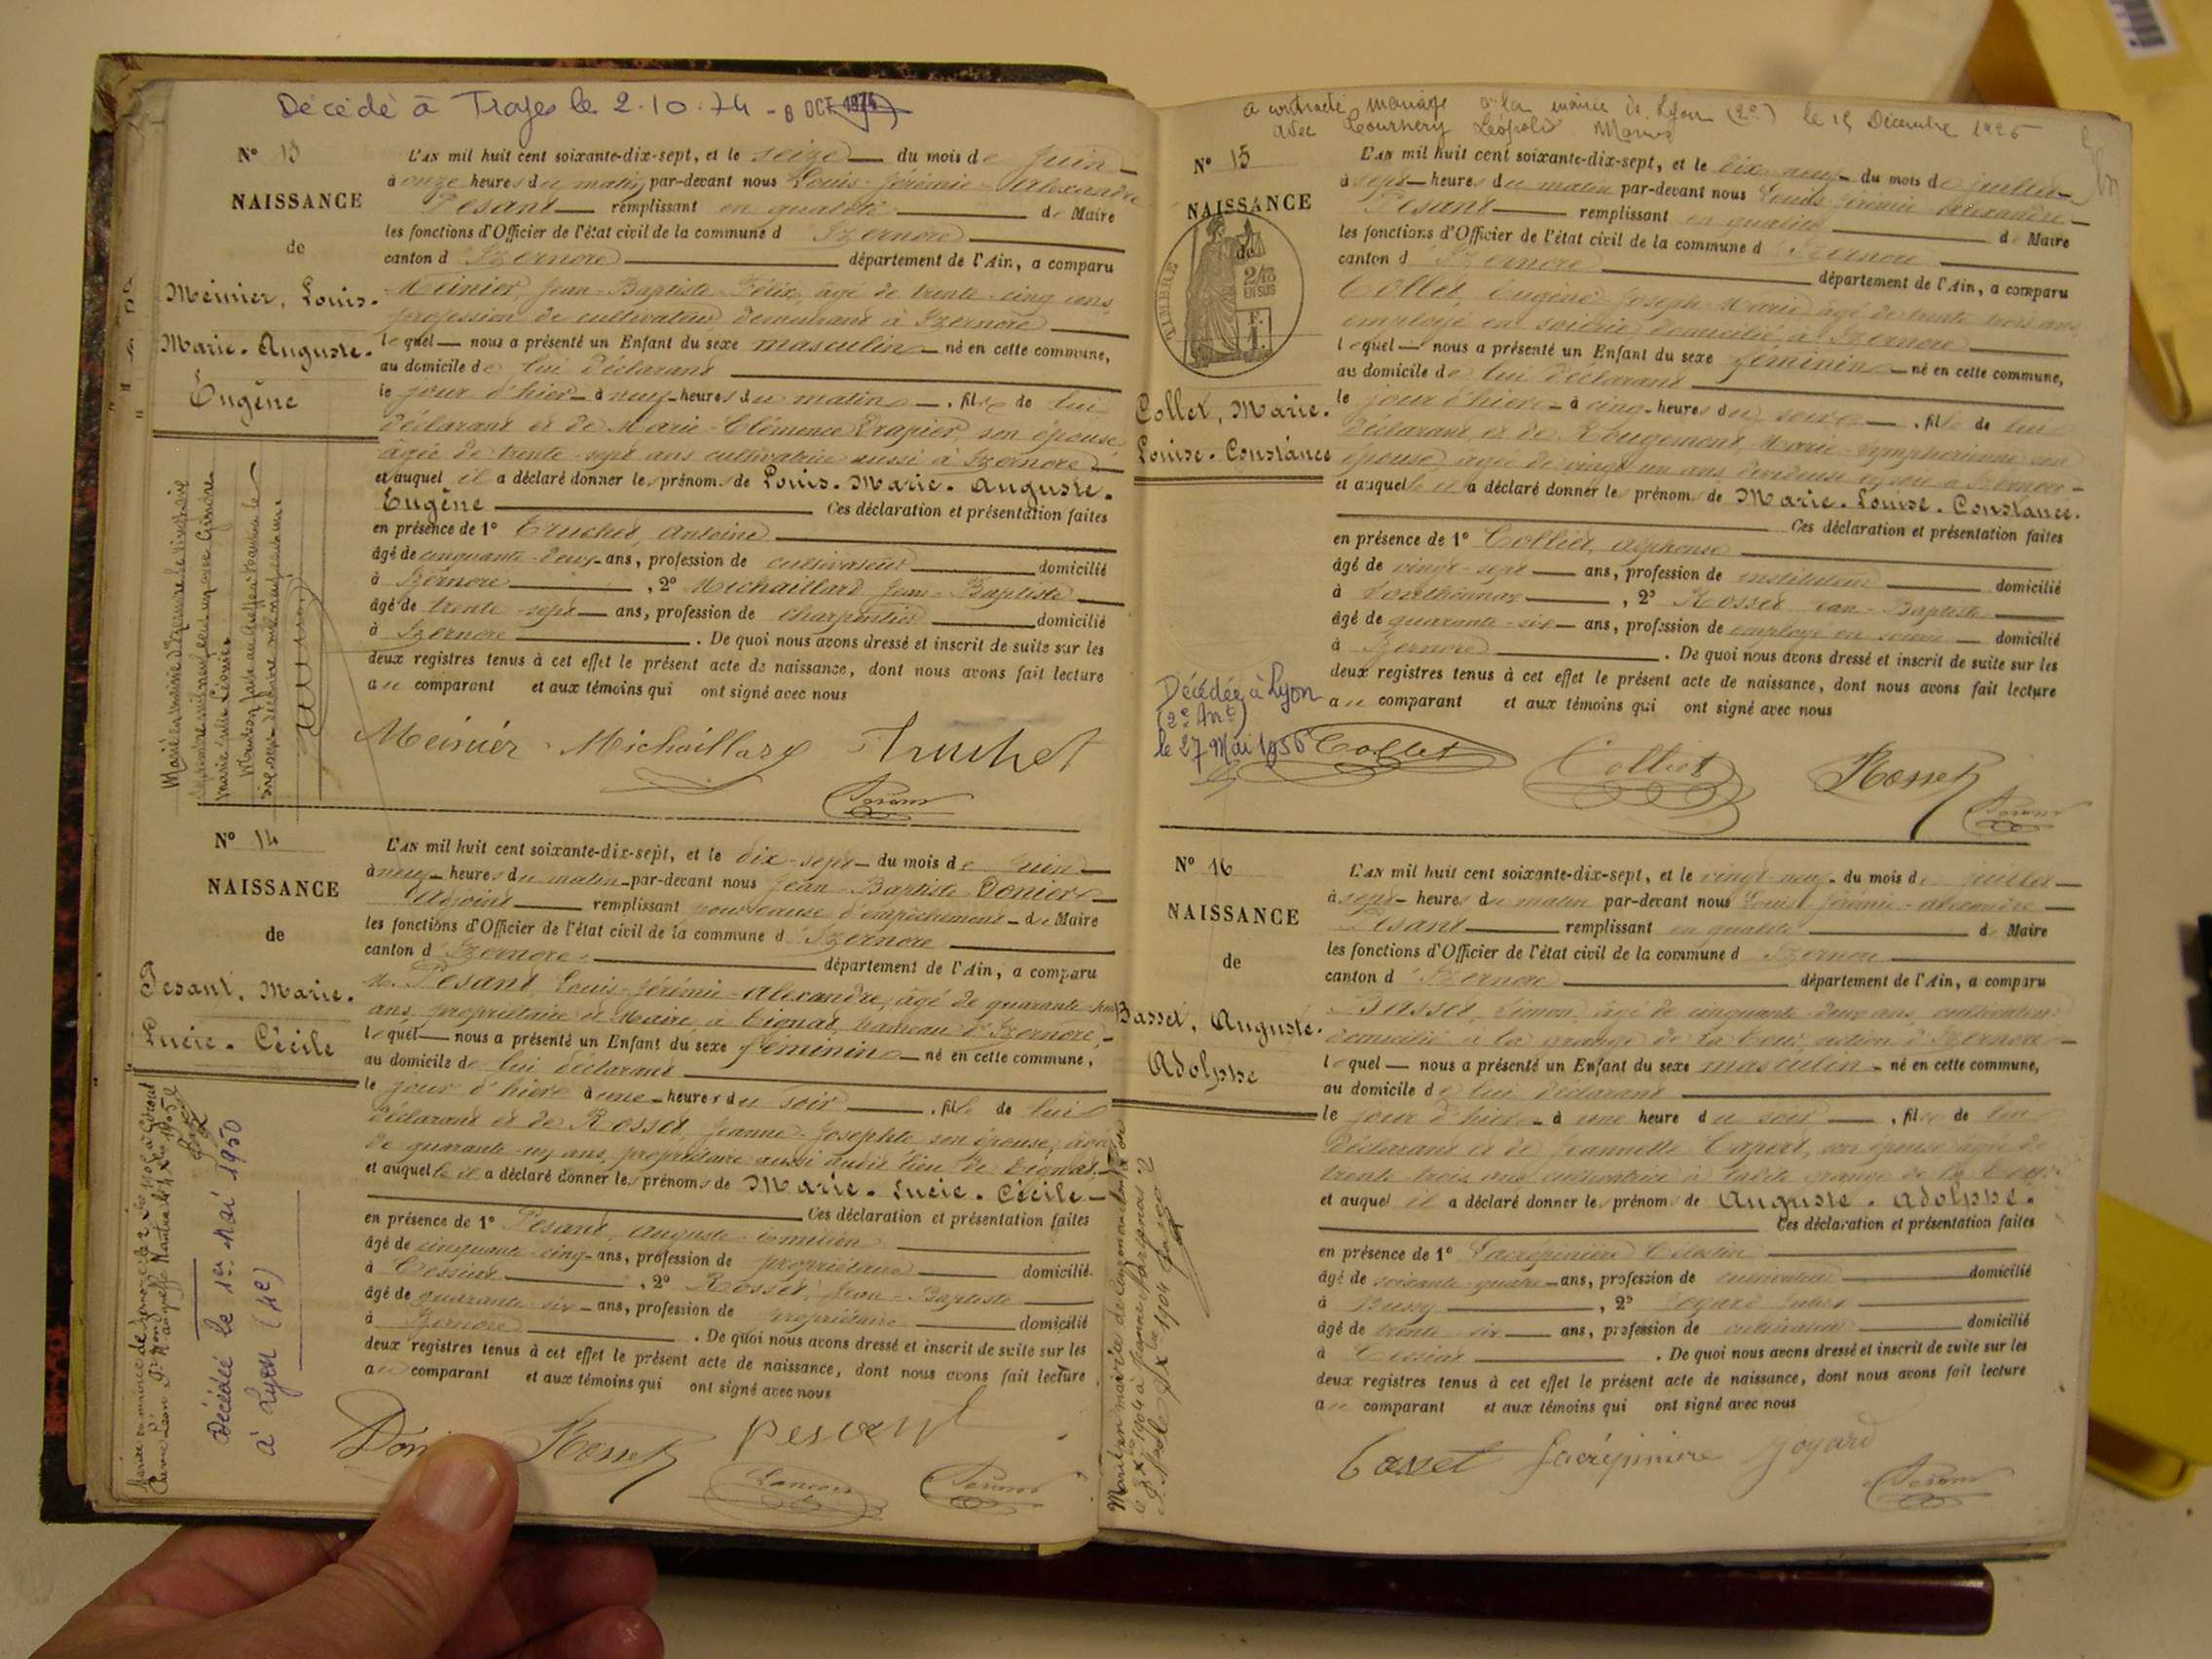 Décédé à Troyes le 2.10.74 - 8 OCT 1974
N° 13
NAISSANCE
de
Meinier, Louis.
Marie. Auguste.
Eugène
L'AN mil huit cent soixante-dix-sept, et le seize du mois de juin
à onze heures du matin par-devant nous Louis-Jérémie-Alexandre
Pesant remplissant en qualité de Maire
les fonctions d'Officier de l'état civil de la commune d'Izernore
canton d'Izernore département de l'Ain, a comparu
Meinier, Jean-Baptiste Félix, âgé de trente-cinq ans,
profession de cultivateur demeurant à Izernore
lequel nous a présenté un Enfant du sexe masculin né en cette commune,
au domicile de lui déclarant
le jour d'hier à neuf heures du matin, fils de lui
déclarant et de Marie-Clémence Drapier, son épouse
âgée de trente-sept ans cultivatrice aussi à Izernore
et auquel il a déclaré donner les prénoms de Louis. Marie. Auguste.
Eugène Ces déclaration et présentation faites
en présence de 1° Truchet, Antoine
âgé de cinquante-deux ans, profession de cultivateur domicilié
à Izernore, 2° Michaillard Jean-Baptiste
âgé de trente-sept ans, profession de charpentier domicilié
à Izernore. De quoi nous avons dressé et inscrit de suite sur les
deux registres tenus à cet effet le présent acte de naissance, dont nous avons fait lecture
au comparant et aux témoins qui ont signé avec nous
Meinier Michaillard Truchet
Pesant
N° 14
NAISSANCE
de
Pesant, Marie.
Lucie. Cécile
Décédée le 1er Mai 1950
à Lyon (4e)
L'AN mil huit cent soixante-dix-sept, et le dix-sept du mois de juin
à neuf heures du matin par-devant nous Jean-Baptiste Donier
adjoint remplissant pour cause d'empêchement du Maire
les fonctions d'Officier de l'état civil de la commune d'Izernore
canton d'Izernore département de l'Ain, a comparu
M. Pesant, Louis-Jérémie-Alexandre, âgé de quarante-
ans, propriétaire et Maire, à Tignat, hameau d'Izernore,
lequel nous a présenté un Enfant du sexe féminin né en cette commune,
au domicile de lui déclarant
le jour d'hier à une heures du soir, fille de lui
déclarant et de Rosset, Jeanne-Josephte son épouse, âgée
de quarante-un ans, propriétaire aussi audit lieu de Tignat,
et auquelle il a déclaré donner les prénoms de Marie. Lucie. Cécile
Ces déclaration et présentation faites
en présence de 1° Pesant, Auguste
âgé de cinquante-cinq ans, profession de propriétaire domicilié
à Cessiat, 2° Rosset, Jean-Baptiste
âgé de quarante-six ans, profession de propriétaire domicilié
à Izernore. De quoi nous avons dressé et inscrit de suite sur les
deux registres tenus à cet effet le présent acte de naissance, dont nous avons fait lecture
au comparant et aux témoins qui ont signé avec nous
Rosset Pesant
Pesant
a contracté mariage à la mairie de Lyon (2e) le 15 Décembre 1926
avec Léopold
N° 15
NAISSANCE
de
TIMBRE
2/10
EN SUS
Collet, Marie.
Louise. Constance
Décédée à Lyon
(2e Arrt)
le 27 Mai 1956
L'AN mil huit cent soixante-dix-sept, et le dix-neuf du mois de juillet
à sept heures du matin par-devant nous Louis Jérémie Alexandre
Pesant remplissant en qualité de Maire
les fonctions d'Officier de l'état civil de la commune d'Izernore
canton d'Izernore département de l'Ain, a comparu
Collet, Eugène Joseph-Marie âgé de trente trois ans
employé en soierie domicilié à Izernore
lequel nous a présenté un Enfant du sexe féminin né en cette commune,
au domicile de lui déclarant
le jour d'hier à cinq heures du soir, fille de lui
déclarant, et de Rougemont, Marie-Symphorienne son
épouse, âgée de vingt un ans, dévideuse en soie à Izernore
et auquelle il a déclaré donner les prénoms de Marie. Louise. Constance.
Ces déclaration et présentation faites
en présence de 1° Colliet, Alphonse
âgé de vingt-sept ans, profession de instituteur domicilié
à, 2° Rosset Jean-Baptiste
âgé de quarante-six ans, profession de employé en soierie domicilié
à Izernore. De quoi nous avons dressé et inscrit de suite sur les
deux registres tenus à cet effet le présent acte de naissance, dont nous avons fait lecture
au comparant et aux témoins qui ont signé avec nous
Collet Colliet Rosset
Pesant
N° 16
NAISSANCE
de
Basset, Auguste.
Adolphe
L'AN mil huit cent soixante-dix-sept, et le vingt neuf du mois de juillet
à sept heures du matin par-devant nous Louis-Jérémie-Alexandre
Pesant remplissant en qualité de Maire
les fonctions d'Officier de l'état civil de la commune d'Izernore
canton d'Izernore département de l'Ain, a comparu
Basset, Simon, âgé de cinquante-deux ans, cultivateur
domicilié à la grange de la section d'Izernore
lequel nous a présenté un Enfant du sexe masculin né en cette commune,
au domicile de lui déclarant
le jour d'hier à une heure du soir, fils de lui
déclarant et de Jeannette son épouse âgée de
trente trois ans cultivatrice à ladite grange de la
et auquel il a déclaré donner les prénoms de Auguste. Adolphe.
Ces déclaration et présentation faites
en présence de 1° Lacrépinière Célestin
âgé de soixante quatre ans, profession de cultivateur domicilié
à Bussy, 2° Joyard
âgé de trente six ans, profession de cultivateur domicilié
à Cessiat. De quoi nous avons dressé et inscrit de suite sur les
deux registres tenus à cet effet le présent acte de naissance, dont nous avons fait lecture
au comparant et aux témoins qui ont signé avec nous
Basset Lacrépinière Joyard
Pesant